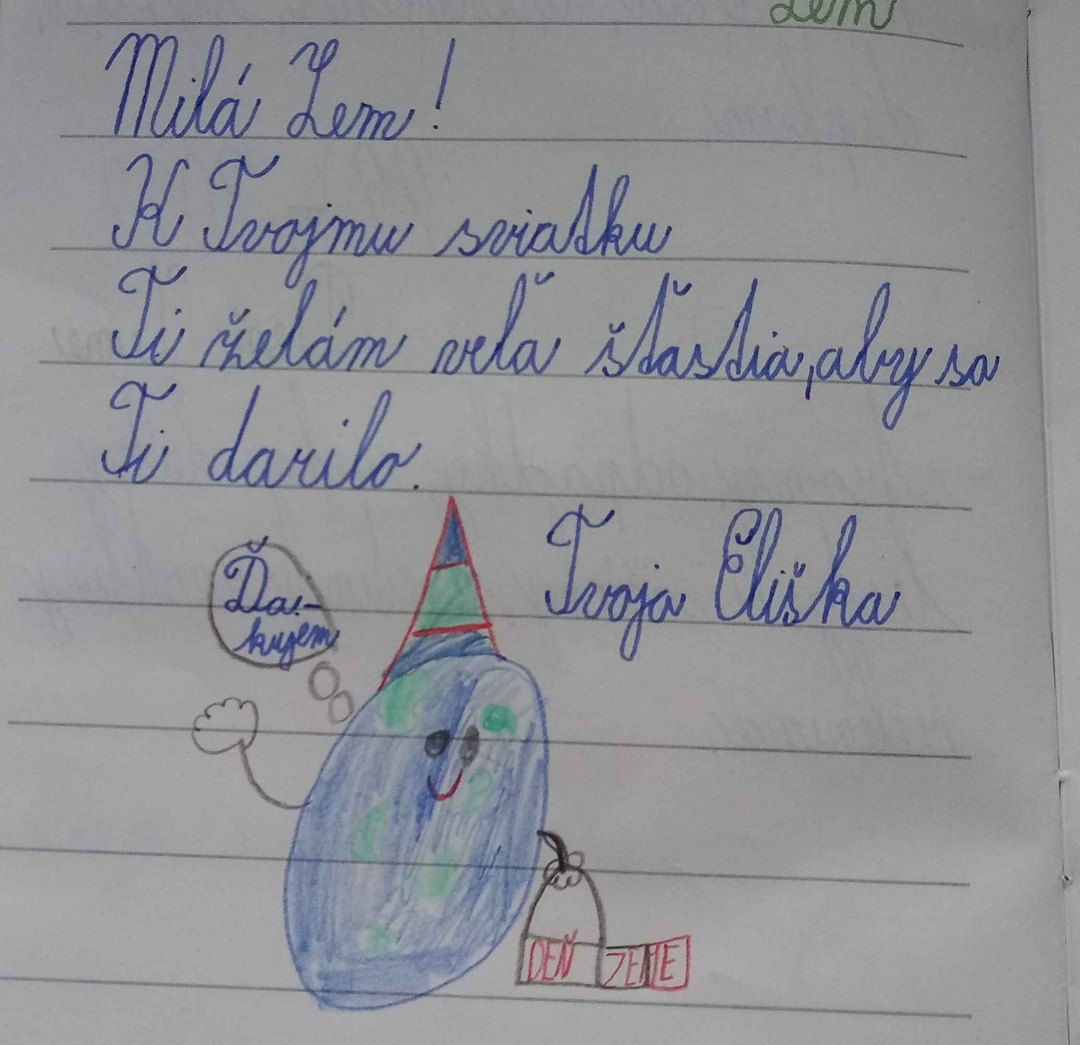 Zem
Milá Zem!
K Tvojmu sviatku
Ti želám veľa šťastia, aby sa
Ti darilo.
Tvoja Eliška
Ďa-
kujem
DEŇ ZEME